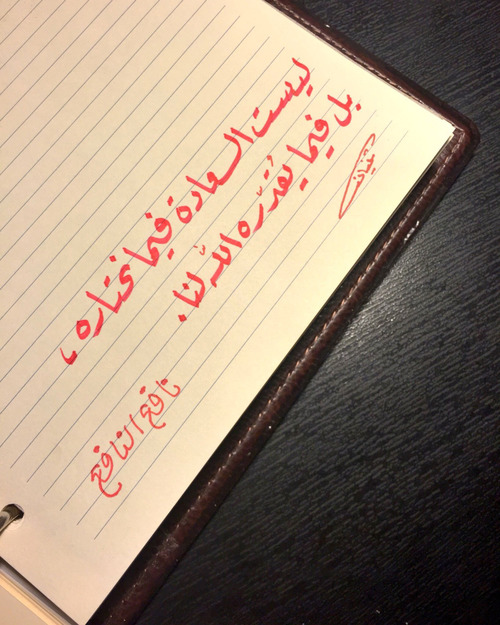 ليست السعادة فيما نختاره،
بل فيما يُقدّره اللّٰه لنا.
نافع النافع